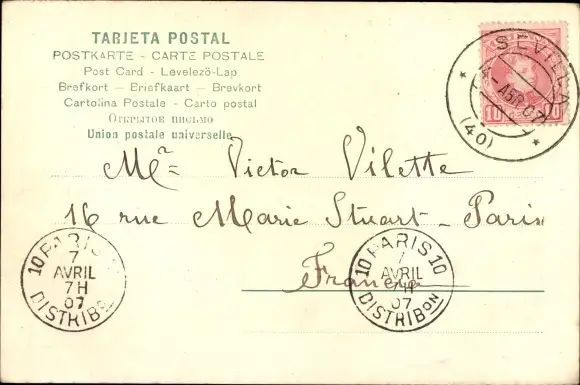 TARJETA POSTAL
POSTKARTE - CARTE POSTALE
Post Card - Levelező-Lap
Brefkort — Briefkaart — Brevkort
Cartolina Postale - Carto postal
Открытое письмо
Union postale universelle
SEVILLA
4-ABR 07
(40)
10 10
Mr Victor Vilette
16 rue Marie Stuart - Paris
France
10 PARIS
7
AVRIL
7H
07
DISTRIBON
10 PARIS 10
7
AVRIL
7H
07
DISTRIBON